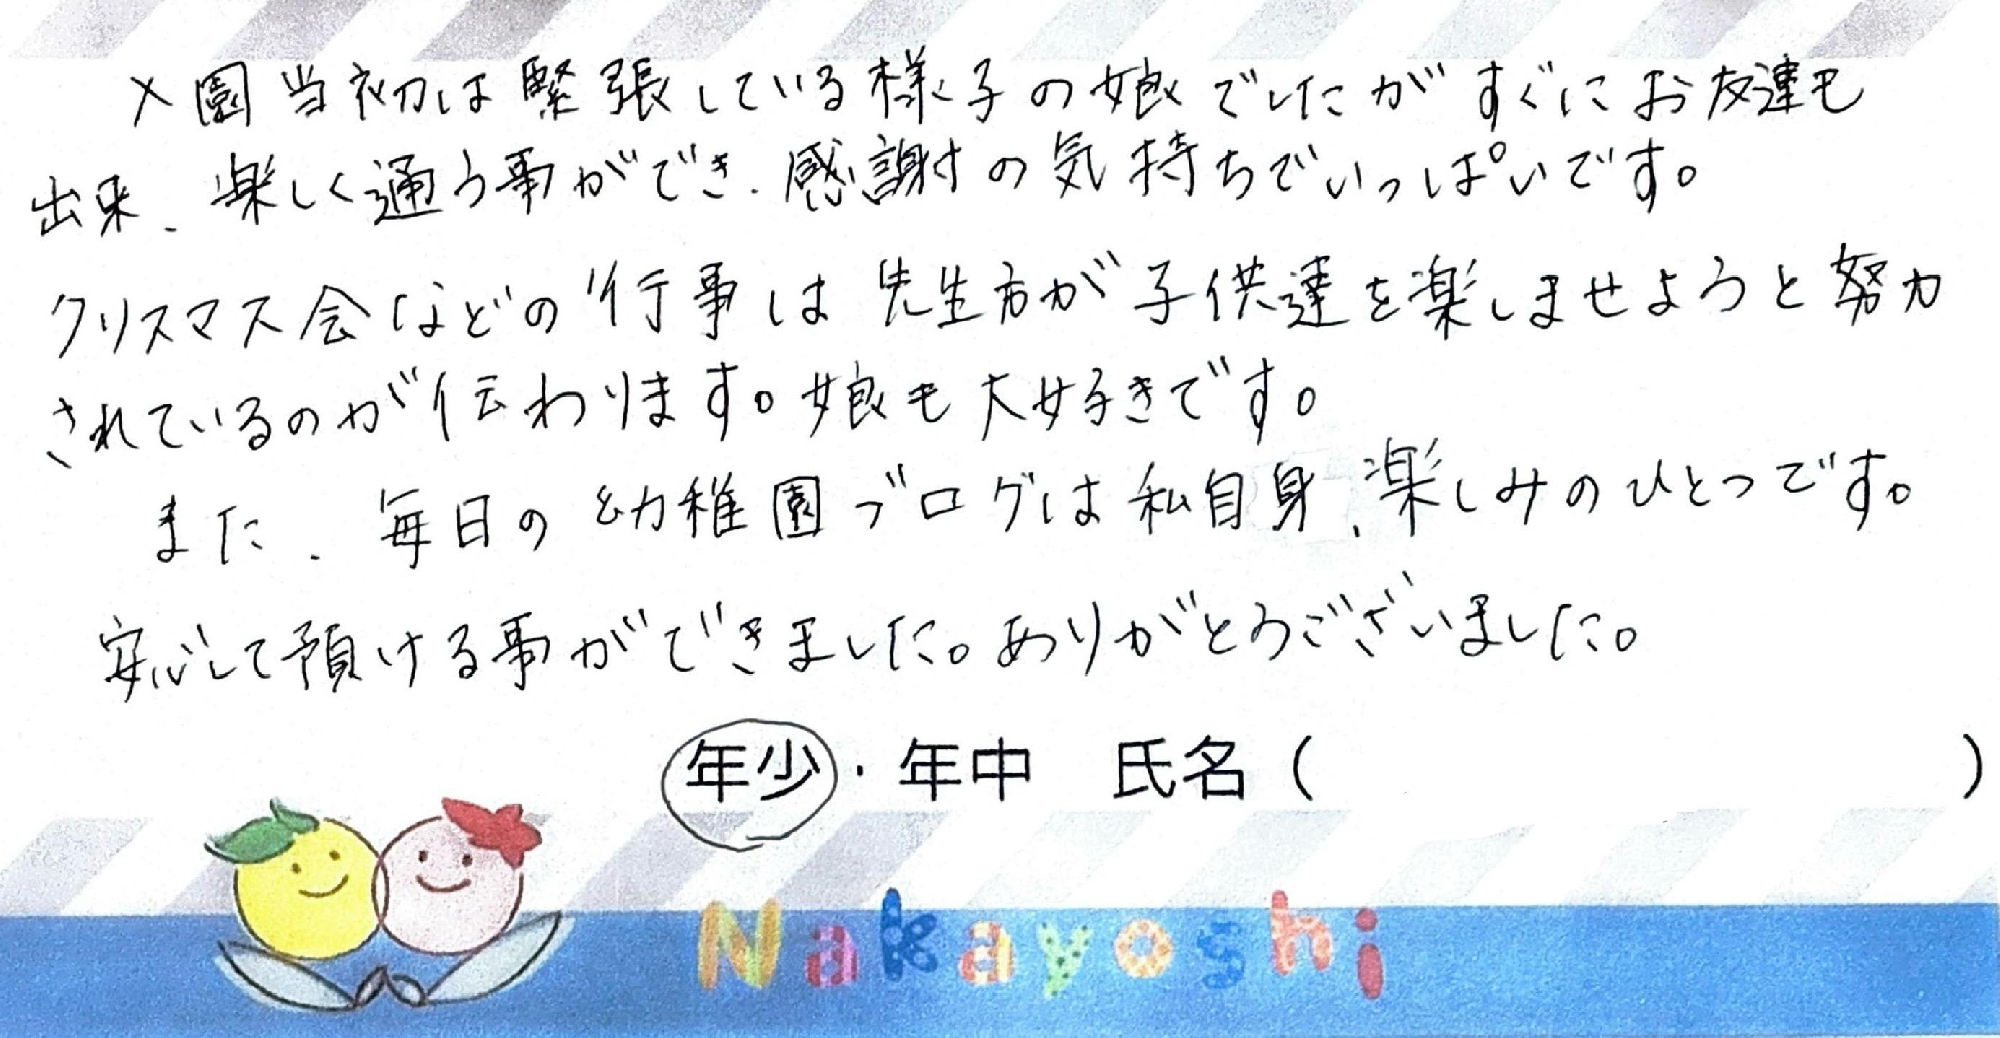 入園当初は緊張している様子の娘でしたがすぐにお友達も
出来、楽しく通う事ができ、感謝の気持ちでいっぱいです。
クリスマス会などの行事は先生方が子供達を楽しませようと努力
されているのが伝わります。娘も大好きです。
また、毎日の幼稚園ブログは私自身、楽しみのひとつです。
安心して預ける事ができました。ありがとうございました。
年少・年中 氏名( )
Nakayoshi